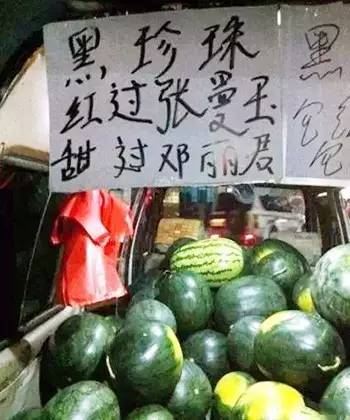 黑珍珠
红过张曼玉
甜过邓丽君
黑
包
包